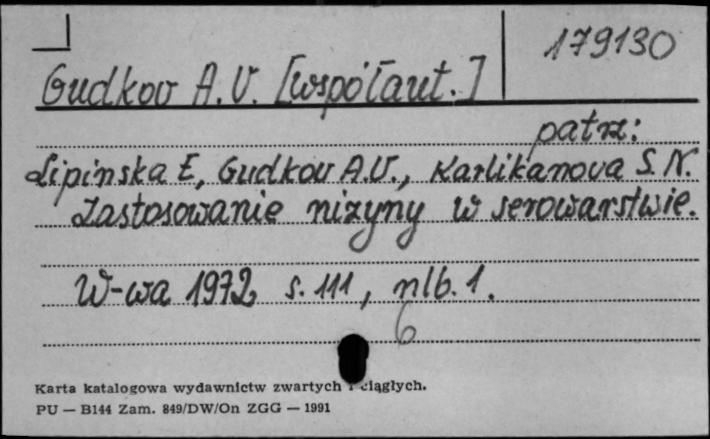 Gudkov A.V. [współaut.]
179130
patrz:
Lipińska E, Gudkov A.V., Karlikanova S.N.
Zastosowanie nizyny w serowarstwie.
W-wa 1972 s. 111, nlb. 1.
6
Karta katalogowa wydawnictw zwartych i ciągłych.
PU — B144 Zam. 849/DW/On ZGG — 1991